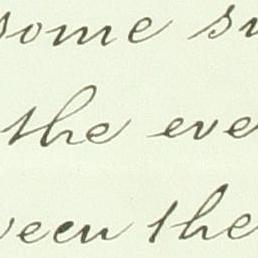 some su
the eve
ween the